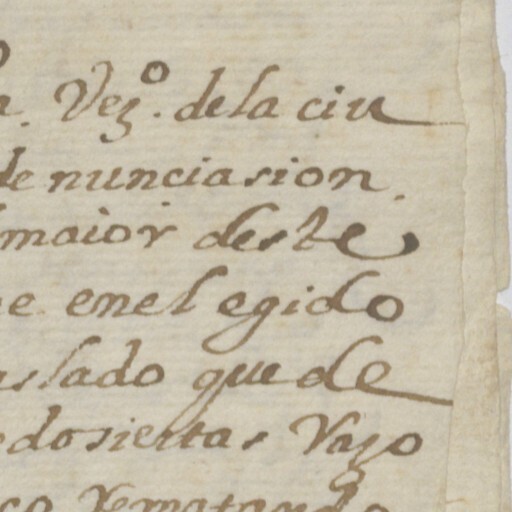 a. Vez.º de la ciu
denunciasion.
maior deste
e en el egido
aslado que de
dosiertas Vazo
co rematando